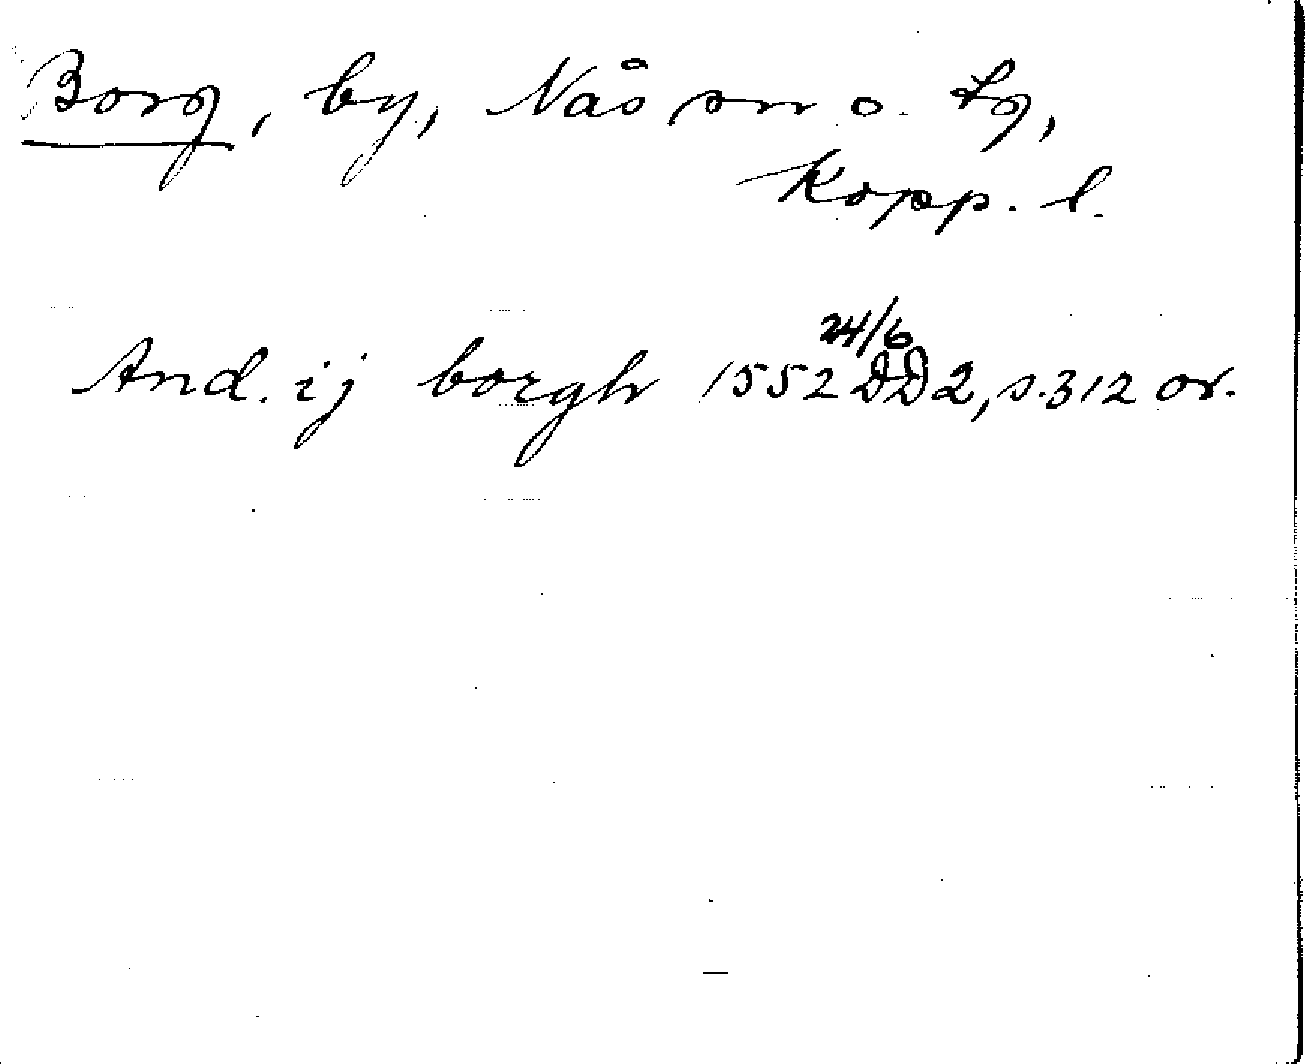 Borg, by, Nås sn o. tg,
Kopp. l.
And. ij borgh 1552 24/6 DD2, s. 312 or.